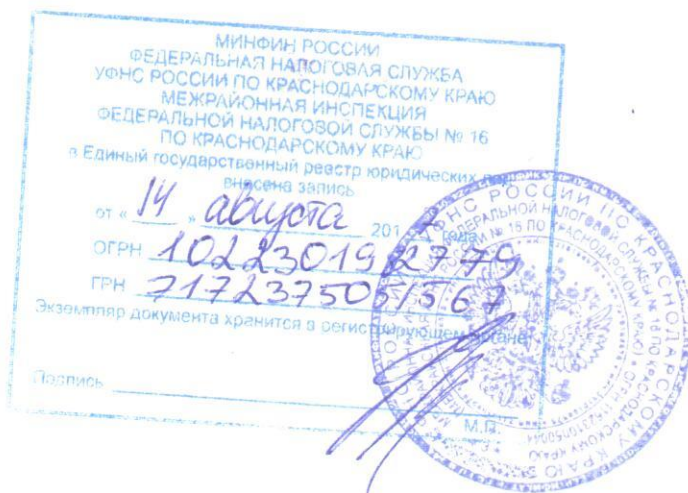 МИНФИН РОССИИ
ФЕДЕРАЛЬНАЯ НАЛОГОВАЯ СЛУЖБА
УФНС РОССИИ ПО КРАСНОДАРСКОМУ КРАЮ
МЕЖРАЙОННАЯ ИНСПЕКЦИЯ
ФЕДЕРАЛЬНОЙ НАЛОГОВОЙ СЛУЖБЫ № 16
ПО КРАСНОДАРСКОМУ КРАЮ
в Единый государственный реестр юридических лиц
внесена запись
от « 14 » августа 2017 года
ОГРН 1022301982779
ГРН 7172375051567
Экземпляр документа хранится в регистрирующем органе
Подпись
М.П.
УФНС РОССИИ ПО КРАСНОДАРСКОМУ КРАЮ